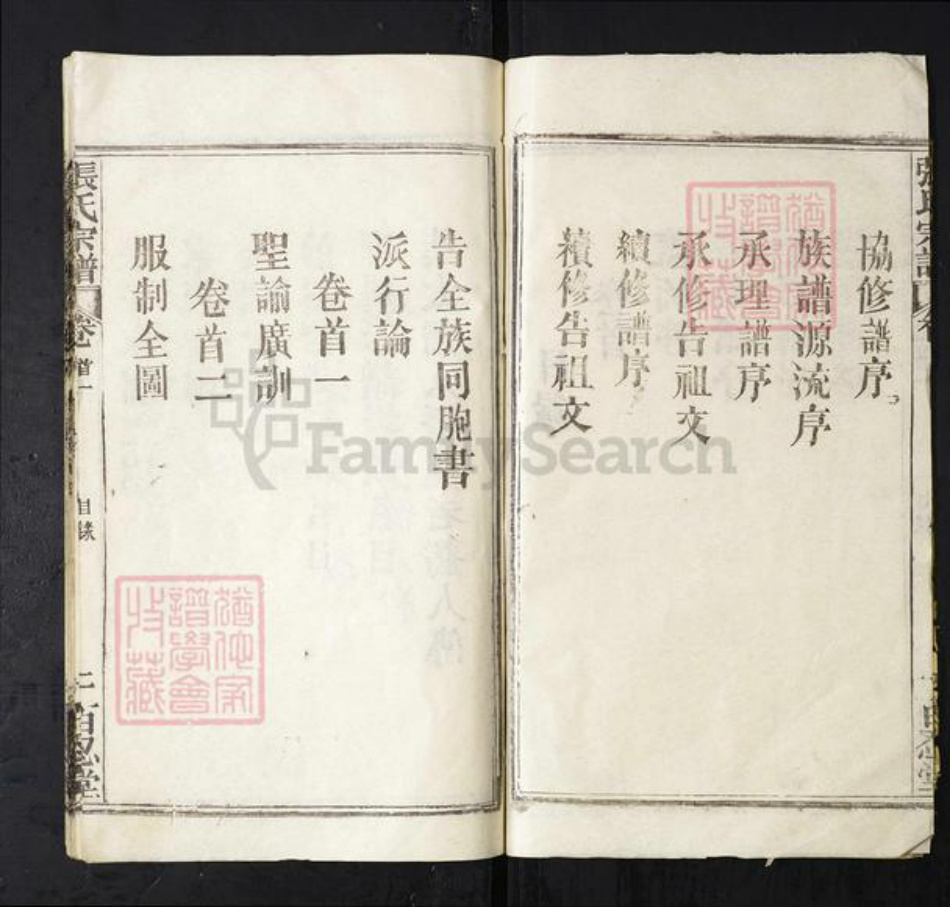 協修譜序
族譜源流序
承理譜序
承修告祖文
續修譜序
續修告祖文
告全族同胞書
派行論
卷首一
聖諭廣訓
卷首二
服制全圖
張氏宗譜
卷首一
目錄
二
百忍堂
猶他家
譜學會
收藏
猶他家
譜學會
收藏
FamilySearch